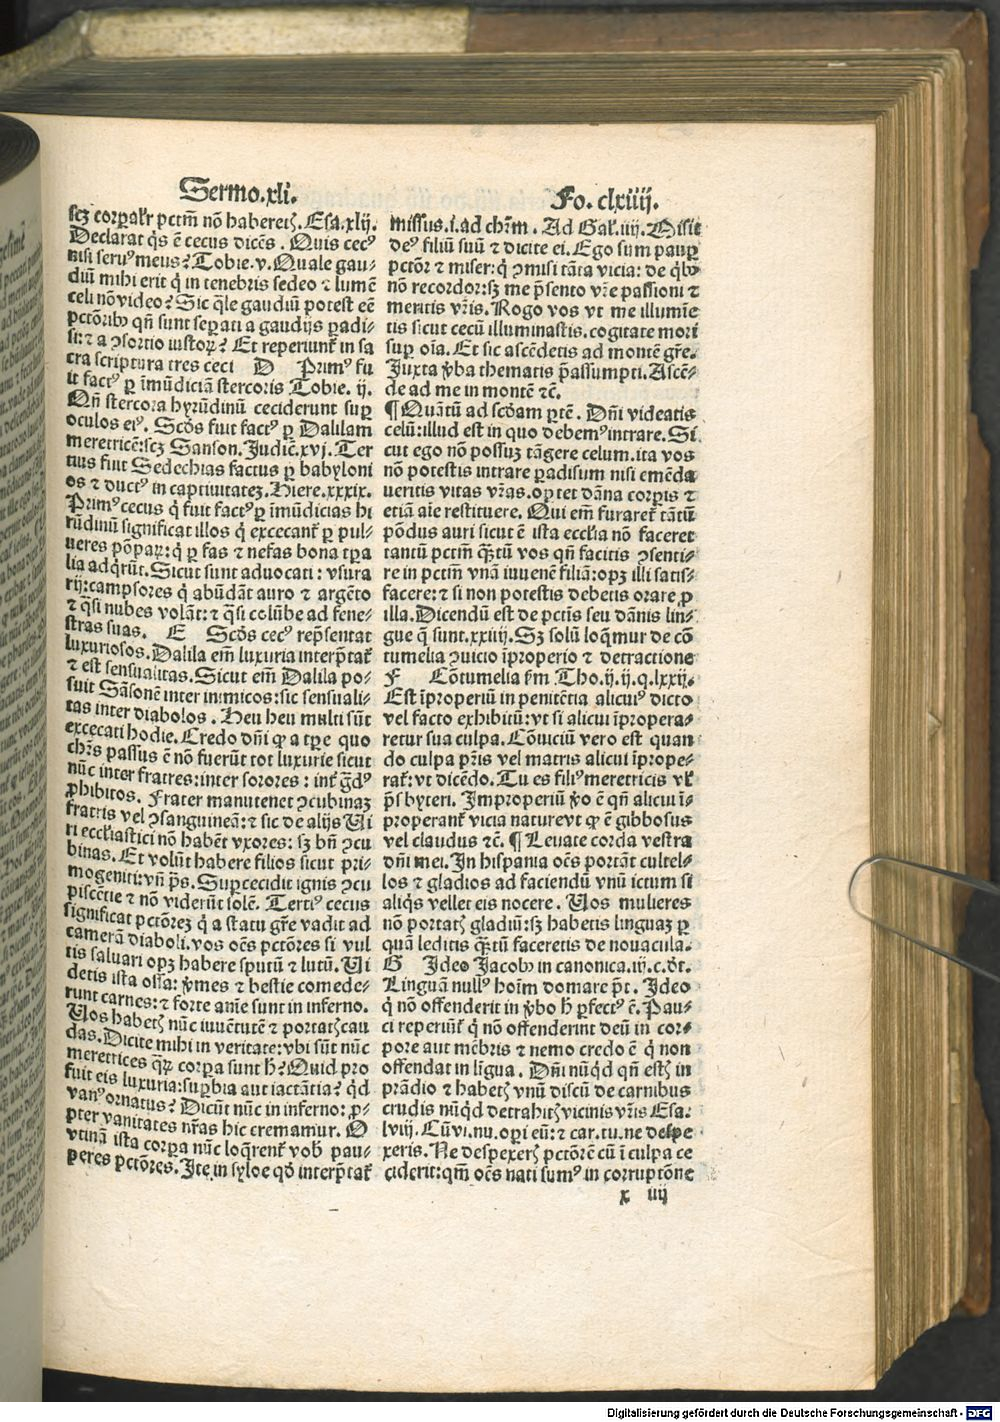 Sermo.xli.
Fo. clxiiij.
scꝫ corꝑalr̄ pctm̄ nō haberetꝫ. Esa.xlij.
Declarat q̇s ē cecus dicēs. Quis cecꝰ
nisi seruꝰ meus? Tobie.v. Quale gau⸗
diū mihi erit q̇ in tenebris sedeo ⁊ lumē
celi nō video? Sic q̄le gaudiū potest eē
pctōribꝰ qn̄ sunt seꝑati a gaudijs ꝑadi⸗
si: ⁊ a ꝯsortio iustoꝝ? Et reperiunt̄ in sa
cra scriptura tres ceci D Primꝰ fu
it factꝰ ꝑ īmūdiciā stercoris Tobie. ij.
Qn̄ stercora hyrūdinū ceciderunt suꝑ
oculos eiꝰ. Scd̄s fuit factꝰ ꝑ Dalilam
meretricē: scꝫ Sanson. Judic̄.xvj. Ter
tius fuit Sedechias factus ꝑ babyloni
os ⁊ ductꝰ in captiuitateꝫ. Hiere.xxxix.
Primꝰ cecus q̇ fuit factꝰ ꝑ īmūdicias hi
rūdinū significat illos q̇ excecant̄ ꝑ pul⸗
ueres pōpaꝝ: q̇ ꝑ fas ⁊ nefas bona tꝑa
lia adq̇rūt. Sicut sunt aduocati: vsura
rij: campsores q̇ abūdāt auro ⁊ argēto
⁊ q̄si nubes volāt: ⁊ q̄si colūbe ad fene⸗
stras suas. E Scd̄s cecꝰ rep̄sentat
luxuriosos. Dalila em̄ luxuria interp̄tat̄
⁊ est sensualitas. Sicut em̄ Dalila po⸗
suit Sāsonē inter inimicos: sic sensuali⸗
tas inter diabolos. Heu heu multi sūt
excecati hodie. Credo dn̄i ꝙ a tꝑe quo
chr̄s passus ē nō fuerūt tot luxurie sicut
nūc inter fratres: inter sorores: int̄ g̈dꝰ
ꝓhibitos. Frater manutenet ꝯcubinaꝫ
fratris vel ꝯsanguineā: ⁊ sic de alijs Ui
ri eccl̄iastici nō habēt vxores: sꝫ bn̄ ꝯcu
binas. Et volūt habere filios sicut pri⸗
mogeniti: vn̄ p̄s. Suꝑcecidit ignis ꝯcu
piscētie ⁊ nō viderūt solē. Tertiꝰ cecus
significat pctōreꝫ q̇ a statu gr̄e vadit ad
camerā diaboli. vos oēs pctōres si vul
tis saluari opꝫ habere sputū ⁊ lutū. Ui
detis ista ossa: v̄mes ⁊ bestie comede⸗
runt carnes: ⁊ forte aīe sunt in inferno.
Uos habetꝫ nūc iuuētutē ⁊ portatꝫ cau
das. Dicite mihi in veritate: vbi sūt nūc
meretrices q̄ꝝ corꝑa sunt h̄? Quid pro
fuit eis luxuria: suꝑbia aut iactātia? q̇d
vanꝰ ornatus? Dicūt nūc in inferno: ꝓ⸗
pter vanitates nr̄as hic cremamur. O
vtinā ista corꝑa nūc loq̄rent̄ vob̄ pau⸗
peres pctōres. Ite in syloe qd̄ interp̄tat̄
missus.i. ad chr̄m. Ad Gal̄.iiij. Misit
deꝰ filiū suū ⁊ dicite ei. Ego sum pauꝑ
pctōr ⁊ miser: q̇ ꝯmisi tāta vicia: de q̇bꝰ
nō recordor: sꝫ me p̄sento vr̄e passioni ⁊
meritis vr̄is. Rogo vos vt me illumīe
tis sicut cecū illuminastis. cogitate mori
suꝑ oīa. Et sic ascēdetis ad montē gr̄e.
Juxta v̄ba thematis p̄assumpti. Ascē⸗
de ad me in montē ⁊c̄.
¶ Quātū ad scd̄am ꝑtē. Dn̄i videatis
celū: illud est in quo debemꝰ intrare. Si
cut ego nō possuꝫ tāgere celum. ita vos
nō potestis intrare ꝑadisum nisi emēda
ueritis vitas vr̄as. oꝑtet dāna corꝑis ⁊
etiā aīe restituere. Qui em̄ furaret̄ tātū
pōdus auri sicut ē ista eccl̄ia nō faceret
tantū pctm̄ q̄ꝫtū vos qn̄ facitis ꝯsenti⸗
re in pctm̄ vnā iuuenē filiā: opꝫ illi satis⸗
facere: ⁊ si non potestis debetis orare ꝓ
illa. Dicendū est de pctīs seu dānis lin⸗
gue q̄ sunt.xxiiij. Sꝫ solū loq̄mur de cō
tumelia ꝯuicio īproperio ⁊ detractione
F Cōtumelia ẜm Tho.ij.ij.q.lxxij.
Est īproperiū in penitētia alicuiꝰ dicto
vel facto exhibitū: vt si alicui īpropera⸗
retur sua culpa. Cōuiciū vero est quan
do culpa pr̄is vel matris alicui īprope⸗
rat̄: vt dicēdo. Tu es filiꝰ meretricis vl̄
p̄sbyteri. Improperiū v̄o ē qn̄ alicui ī⸗
properant̄ vicia nature vt ꝙ ē gibbosus
vel claudus ⁊c̄. ¶ Leuate corda vestra
dn̄i mei. In hispania oēs portāt cultel⸗
los ⁊ gladios ad faciendū vnū ictum si
aliq̇s vellet eis nocere. Uos mulieres
nō portatꝫ gladiū: sꝫ habetis linguaꝫ ꝑ
quā leditis q̄ꝫtū faceretis de nouacula.
G Ideo Jacobꝰ in canonica.iij.c.dt̄.
Linguā nullꝰ hoīm domare p̄t. Ideo
q̇ nō offenderit in v̄bo h̄ ꝑfectꝰ ē. Pau⸗
ci reperiūt̄ q̇ nō offenderint deū in cor⸗
pore aut mēbris ⁊ nemo credo ē q̇ non
offendat in līgua. Dn̄i nūq̇d qn̄ estꝫ in
prādio ⁊ habetꝫ vnū discū de carnibus
crudis nūq̇d detrahitꝫ vicinis vr̄is Esa.
lviij. Cū vi.nu.oꝑi eū: ⁊ car.tu.ne despe
xeris. Ne despexerꝫ pctōrē cū ī culpa ce
ciderit: qm̄ oēs nati sumꝰ in corruptōne
x iiij
Digitalisierung gefördert durch die Deutsche Forschungsgemeinschaft - DFG